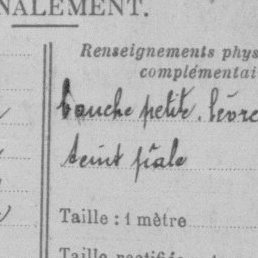 NALEMENT.
Renseignements phys
complémentai
bouche petite, lèvre
teint pâle
Taille : 1 mètre
Taille rectifiée : 1